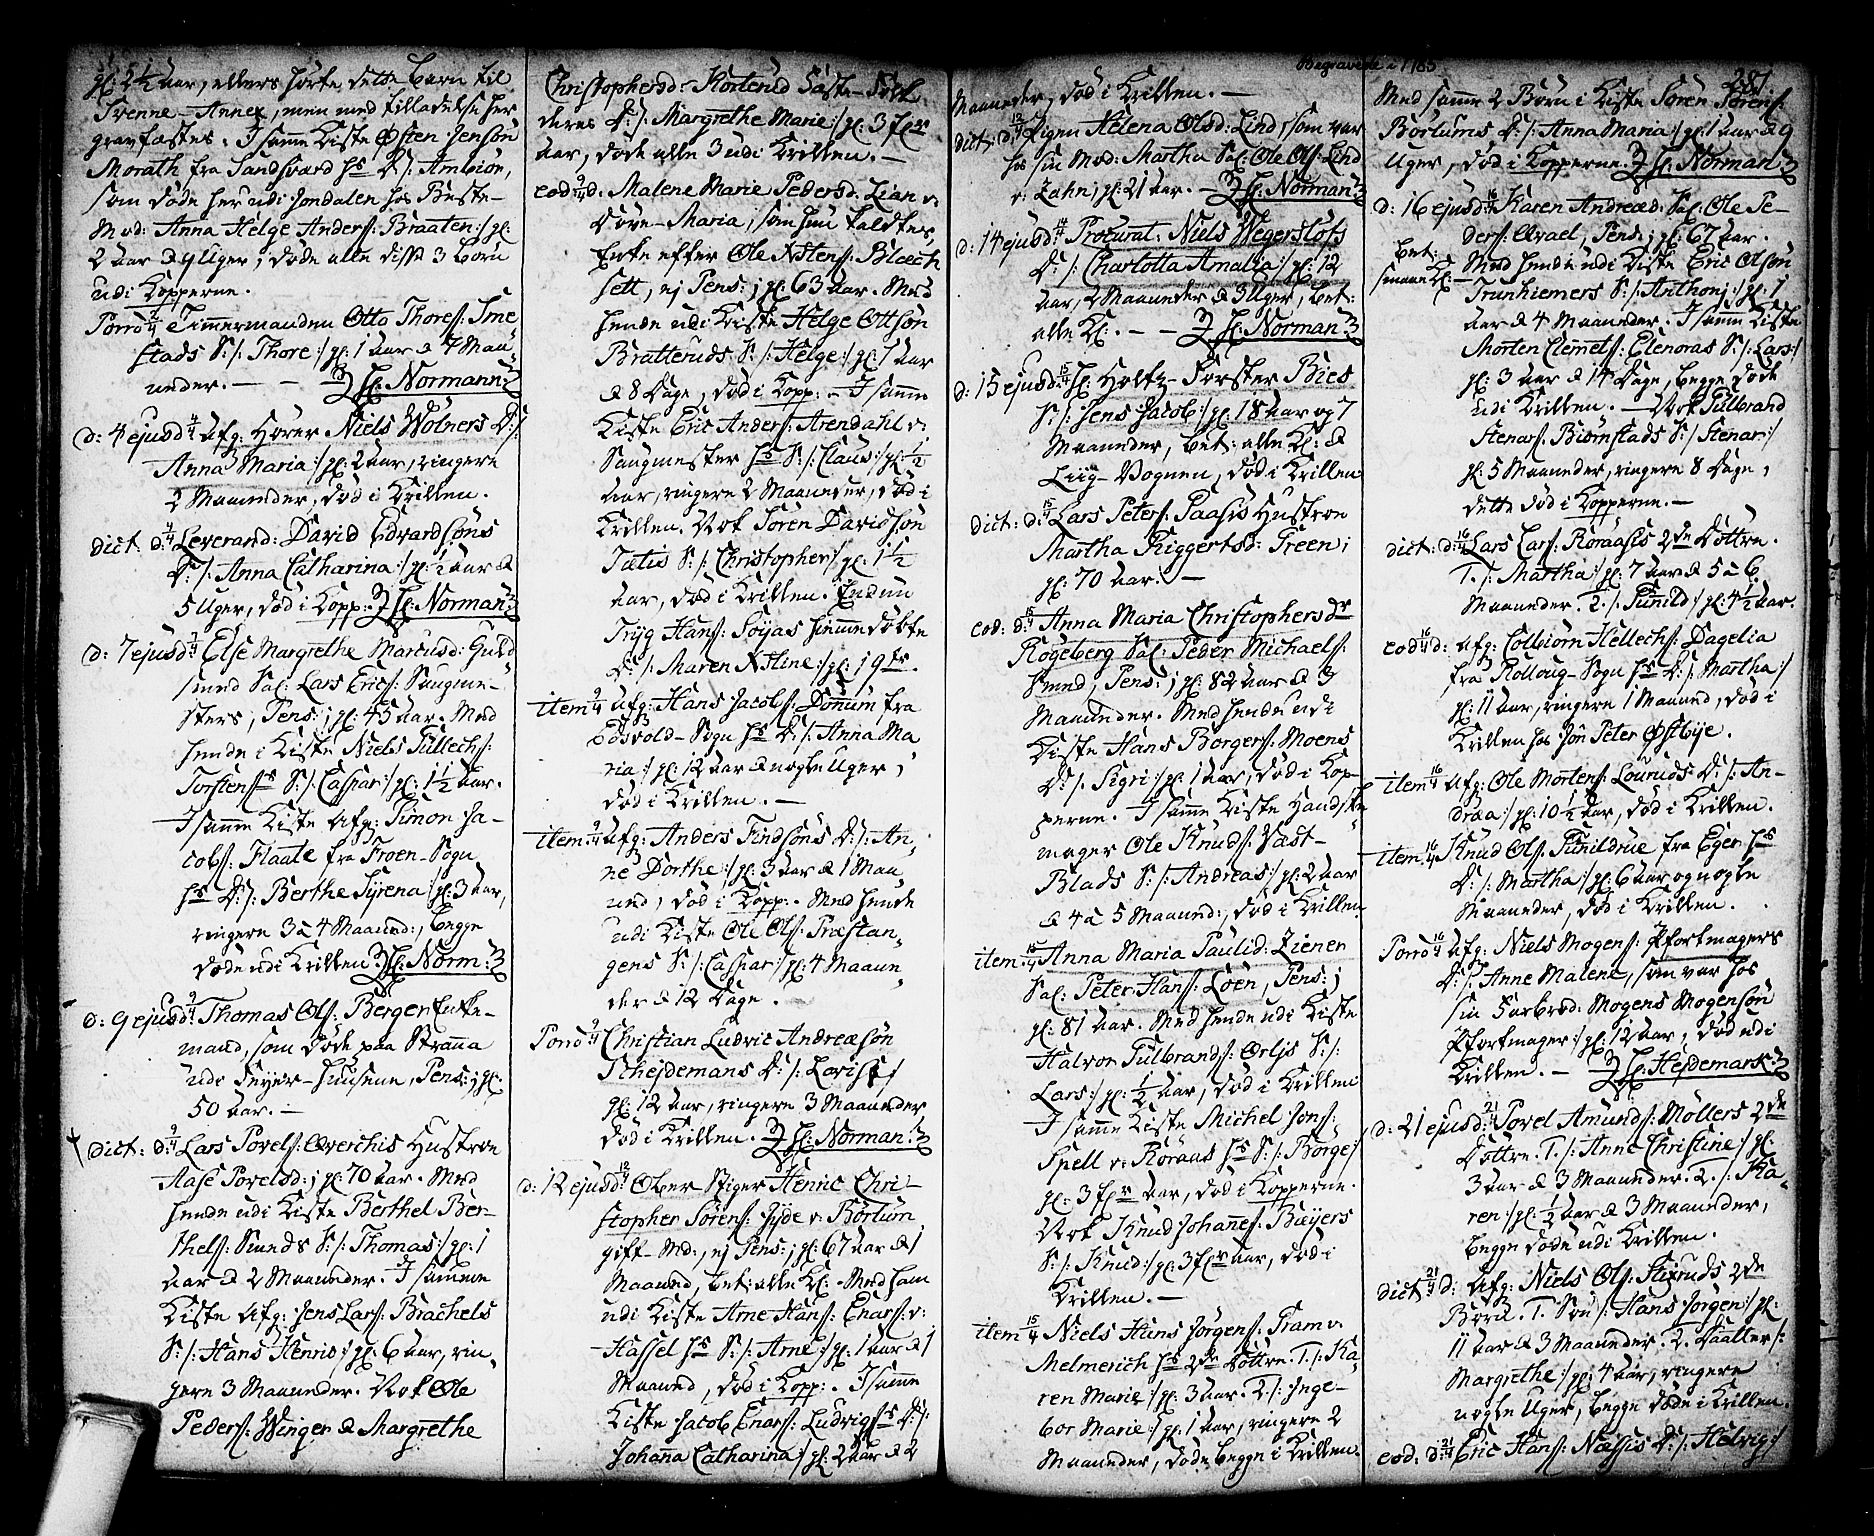 gl: 2½ Aar, ellers hørte dette Barn til
Svenne-Annex, men med tilladelse her
gravfæstes. I samme Kiste Østen Jensøn
Morath fra Sandsværd hs D:/: Ambiön,
som døde her udi Jondalen hos Beste-
Mod: Anna Helge Anders: Braaten:/ gl:
2 Aar & 4 Uger; døde alle disse 3 Børn
udi Kopperne.
Porrò 2/4 Timmermanden Otto Thores:
stads S:/: Thore:/ gl: 1 Aar & 7 Maa-
neder. — — Hl: Normann
d: 4 ejusd: 4/4 Afg: Hører Niels Wølners D:/:
Anna Maria:/ gl: 2 Aar, ringere
2 Maaneder, død i Krillen.
dict: d: 4/4 Leverand: David Edvardsøns
D:/: Anna Catharina:/ gl: ½ Aar &
5 Uger, død i Kopp: Hl: Norman
d: 7 ejusd: 7/4 Else Margrethe Marcusd: Guld-
smed Sal: Lars Erics: Saugme-
sters, Pens:; gl: 45 Aar. Med
hende i Kiste Niels Tullechs:
Torstens: S:/: Caspar:/ gl: 1½ Aar.
I samme Kiste Afg: Simon Ja-
cobs: Flaate fra Froen-Sogn
hs D:/: Berthe Syrena:/ gl: 3 Aar,
ringere 3 à 4 Maaned:, begge
døde udi Krillen. Hl: Norm:
d: 9 ejusd: 9/4 Thomas Ols: Berger Enke-
mand, som døde paa Stranna
udi Huusene, Pens:; gl:
50 Aar. —
dict: d: 9/4 Lars Povels: Qverchis Hustroe
Aase Povelsd:; gl: 70 Aar. Med
hende udi Kiste Berthel Ber-
thels: Sunds S:/: Thomas:/ gl: 1
Aar & 2 Maaneder. I samme
Kiste Afg: Jens Lars: Brachels
S:/: Hans Henric:/ gl: 6 Aar, rin-
gere 3 Maaneder. Nok Ole
Peders: Winger & Margrethe
Christophersd: Korterud
deres D:/: Margrethe Marie:/ gl: 3 fl:
Aar, døde alle 3 udi Krillen. —
eod: 9/4 d: Malene Marie Pedersd: Lian v:
Døve-Maria, som hun kaldtes,
Enke efter Ole Xstens: Bleech
sett, ej Pens:; gl: 63 Aar. Med
hende udi Kiste Helge Ottsøn
Bratteruds S:/: Helge:/ gl: 7 Aar
& 8 Dage, død i Kopp: — I samme
Kiste Eric Anders: Arendahl v:
Saugmester hs S:/: Claus:/ gl: ½
Aar, ringere 2 Maaneder, død i
Krillen. Nok Søren Davidsøn
Tætus S:/: Christopher:/ gl: 1½
Aar, død i Krillen. Endnu
Tryg Hans: Søyas hiemmedøbte
D:/: Maren Xstine:/ gl:
item 9/4 Afg: Hans Jacobs: Donum fra
Edsvold-Sogn hs D:/: Anna Ma
ria:/ gl: 12 Aar & nogle Uger;
død i Krillen. —
item 9/4 Afg: Anders Findsøns D:/: An-
ne Dorthe:/ gl: 3 Aar & 1 Maa-
ned; død i Kopp:. Med hende
udi Kiste Ole Ols: Præstan-
gens S:/: Caspar:/ gl: 4 Maan-
der & 12 Dage.
Porrò 9/4 Christian Ludvic Andreæsøn
Schejdemans D:/: Lovise:/
gl: 12 Aar, ringere 3 Maaneder
død i Krillen. Hl: Norman
d: 12 ejusd: 12/4 Ober Stiger Henric Chri-
stopher Sørens: Jyde v: Børtum
gift-Md:, ej Pens:; gl: 67 Aar & 1
Maaned, bet: alle Kl:. Med ham
udi Kiste Arne Hans: Enars: v:
Hassel hs S:/: Arne:/ gl: 1 Aar & 1
Maaned, død i Kopp:. I samme
Kiste Jacob Enars: Ludvigs: D:/:
Johanna Catharina:/ gl: 2 Aar & 2
Begravede i 1785
281
Maaneder, død i Krillen. —
dict: d: 12/4 Pigen Helena Olsd: Lind, som var
hos sin Mod: Martha Sal: Ole Ols: Lind
v: Lahn; gl: 21 Aar. — Hl: Norman
d: 14 ejusd: 14/4 Procurat: Niels Wegersløfs
D:/: Charlotta Amalia:/ gl: 12
Aar, 2 Maaneder & 3 Uger, bet:
alle Kl:. — — Hl: Norman
d: 15 ejusd: 15/4 Hl: Holtz-Førster Bies
S:/: Jens Jacob:/ gl: 18 Aar og 7
Maaneder, bet: alle Kl: &
Liig-Vognen, død i Krillen
dict: d: 15/4 Lars Peters: Paasis Hustroe
Martha Riggertsd: Green;
gl: 70 Aar. —
eod: d: 15/4 Anna Maria Christophersdr
Røgeberg Sal: Peder Michaels:
Smed, Pens:; gl: 82 Aar & 3
Maaneder. Med hende udi
Kiste Hans Borgers: Moens
D:/: Sigri:/ gl: 1 Aar, død i Kop-
perne. I samme Kiste Handske
mager Ole Knuds: Vast-
Blads S:/: Andreas:/ gl: 2 Aar
& 4 à 5 Maaned:, død i Krillen
item 15/4 Anna Maria Paulid: Ziener
Sal: Peter Hans: Loen, Pens:;
gl: 81 Aar. Med hende udi Kiste
Halvor Gulbrands: Ørljs S:/:
Lars:/ gl: ½ Aar, død i Krillen:
I samme Kiste Michel Jons:
Spell v: Røraas hs S:/: Børge:/
gl: 3 fl: Aar, død i Kopperne.
Nok Knud Johannes: Bæyers
S:/: Knud:/ gl: 3 fl: Aar, død i
Krillen. —
item 15/4 Niels Hans Jørgens: Gram v:
Melmerich hs 2de Døttre. 1:/: Ka
ren Marie:/ gl: 3 Aar. 2:/: Inge-
bor Marie:/ gl: 1 Aar, ringere 2
Maaneder, døde begge i Krillen.
Med samme 2 Børn i Kiste Søren Sørens:
Børtums D:/: Anna Maria:/ gl: 1 Aar & 9
Uger, død i Kopperne. Hl: Norman
d: 16 ejusd: 16/4 Karen Andreæd: Sal: Ole Pe-
ders: Qvael, Pens:; gl: 67 Aar.
bet:
smaae Kl:
Med hende udi Kiste Eric Olsøn
Trunhiemers S:/: Anthonj:/ gl: 7
Aar & 4 Maaneder. I samme Kiste
Morten Clemmets: Elenoras S:/: Lars:/
gl: 3 Aar & 14 Dage, begge døde
udi Krillen. — Nok Gulbrand
Stenars: Biørnstads S:/: Stenar:/
gl: 5 Maaneder, ringere 8 Dage,
dette død i Kopperne. —
dict: d: 16/4 Lars Lars: Røraases 2de Døttre.
1:/: Martha:/ gl: 7 Aar & 5 à 6
Maaneder. 2:/: Gunild:/ gl: 4½ Aar.
eod: 16/4 d: Afg: Colbiørn Hellechs: Dagelia
fra Rolloug-Sogn hs D:/: Martha:/
gl: 11 Aar, ringere 1 Maaned, død i
Krillen hos Jon Peter Østbye.
item 16/4 Afg: Ole Mortens: Louruds D:/: An-
dræa:/ gl: 10½ Aar, død i Krillen.
item 16/4 Knud Ols: Gunildrue fra Eger hs
D:/: Martha:/ gl: 6 Aar og nogle
Maaneder, død i Krillen.
Porrò 16/4 Afg: Niels Mogens: Pfortmagers
D:/: Anne Malene, som var hos
sin Farbrod: Mogens Mogensøn
Pfortmager:/ gl: 12 Aar, død udi
Krillen. — Hl: Hejdemark
d: 21 ejusd: 21/4 Povel Amunds: Møllers 2de
Døttre. 1:/: Anne Christine:/ gl:
3 Aar & 3 Maaneder. 2:/: Ka-
ren:/ gl: ½ Aar & 3 Maaneder,
begge døde udi Krillen.
dict 21/4 d: Afg: Niels Ols: Stigruds 2de
Børn. 1. Søn/: Hans Jørgen:/ gl:
11 Aar & 3 Maaneder. 2. Daatter/:
Margrethe:/ gl: 4 Aar, ringere
nogle Uger, begge døde i Krillen.
eod: d: 21/4 Eric Hans: Næssis D:/: Helvig:/